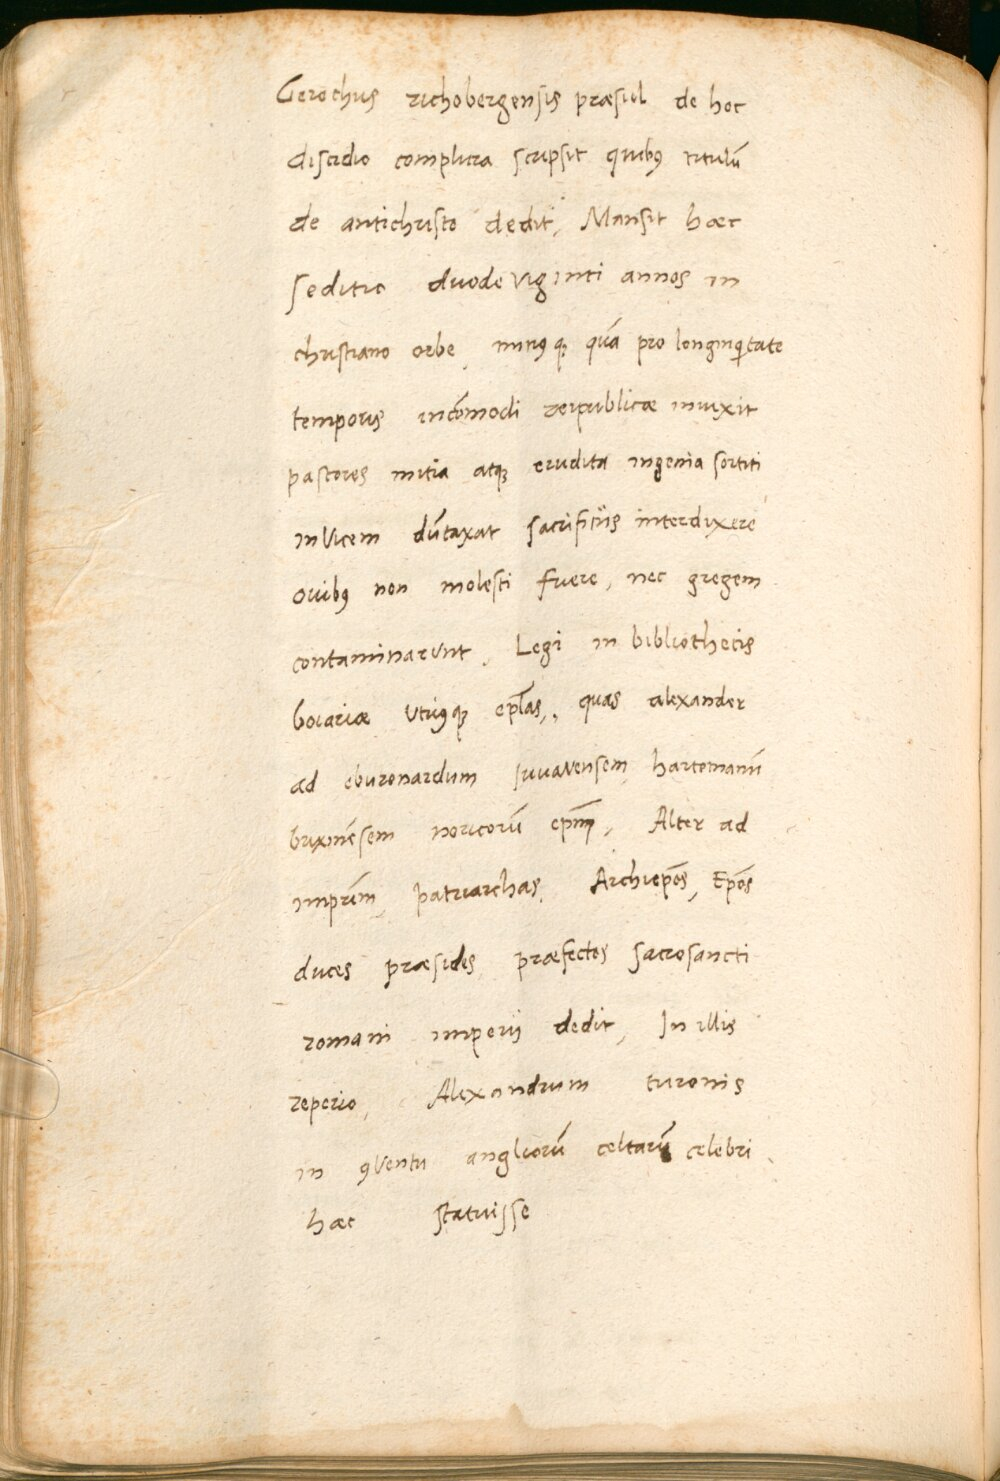 Gerochus richobergensis præsul de hoc
discidio complura scripsit quibꝰ titulū
de antichristo dedit, Mansit hæc
seditio duode viginti annos in
christiano orbe, minꝰ qꝫ quā pro longinqͥtate
temporis incōmodi reipublicæ invixit
pastores mitia atqꝫ erudita ingenia sortiti
inVicem dūtaxat sacrificiis interdixere
ovibꝰ non molesti fuere, nec gregem
contaminarunt, Legi in bibliothecis
boiariæ Utriusqꝫ ep̄las, quas alexander
ad eburonardum Juuavensem, hartomanū
brixinēsem noricorū ep̄m, Alter ad
imprim̄, patriarchas, Archiep̄os, Ep̄os
duces præsides, præfectos sacrosancti
romani imperij dedit, In illis
reperio, Alexandrum turonis
in ꝯventu angliorū celtarū celebri
hæc statuisse